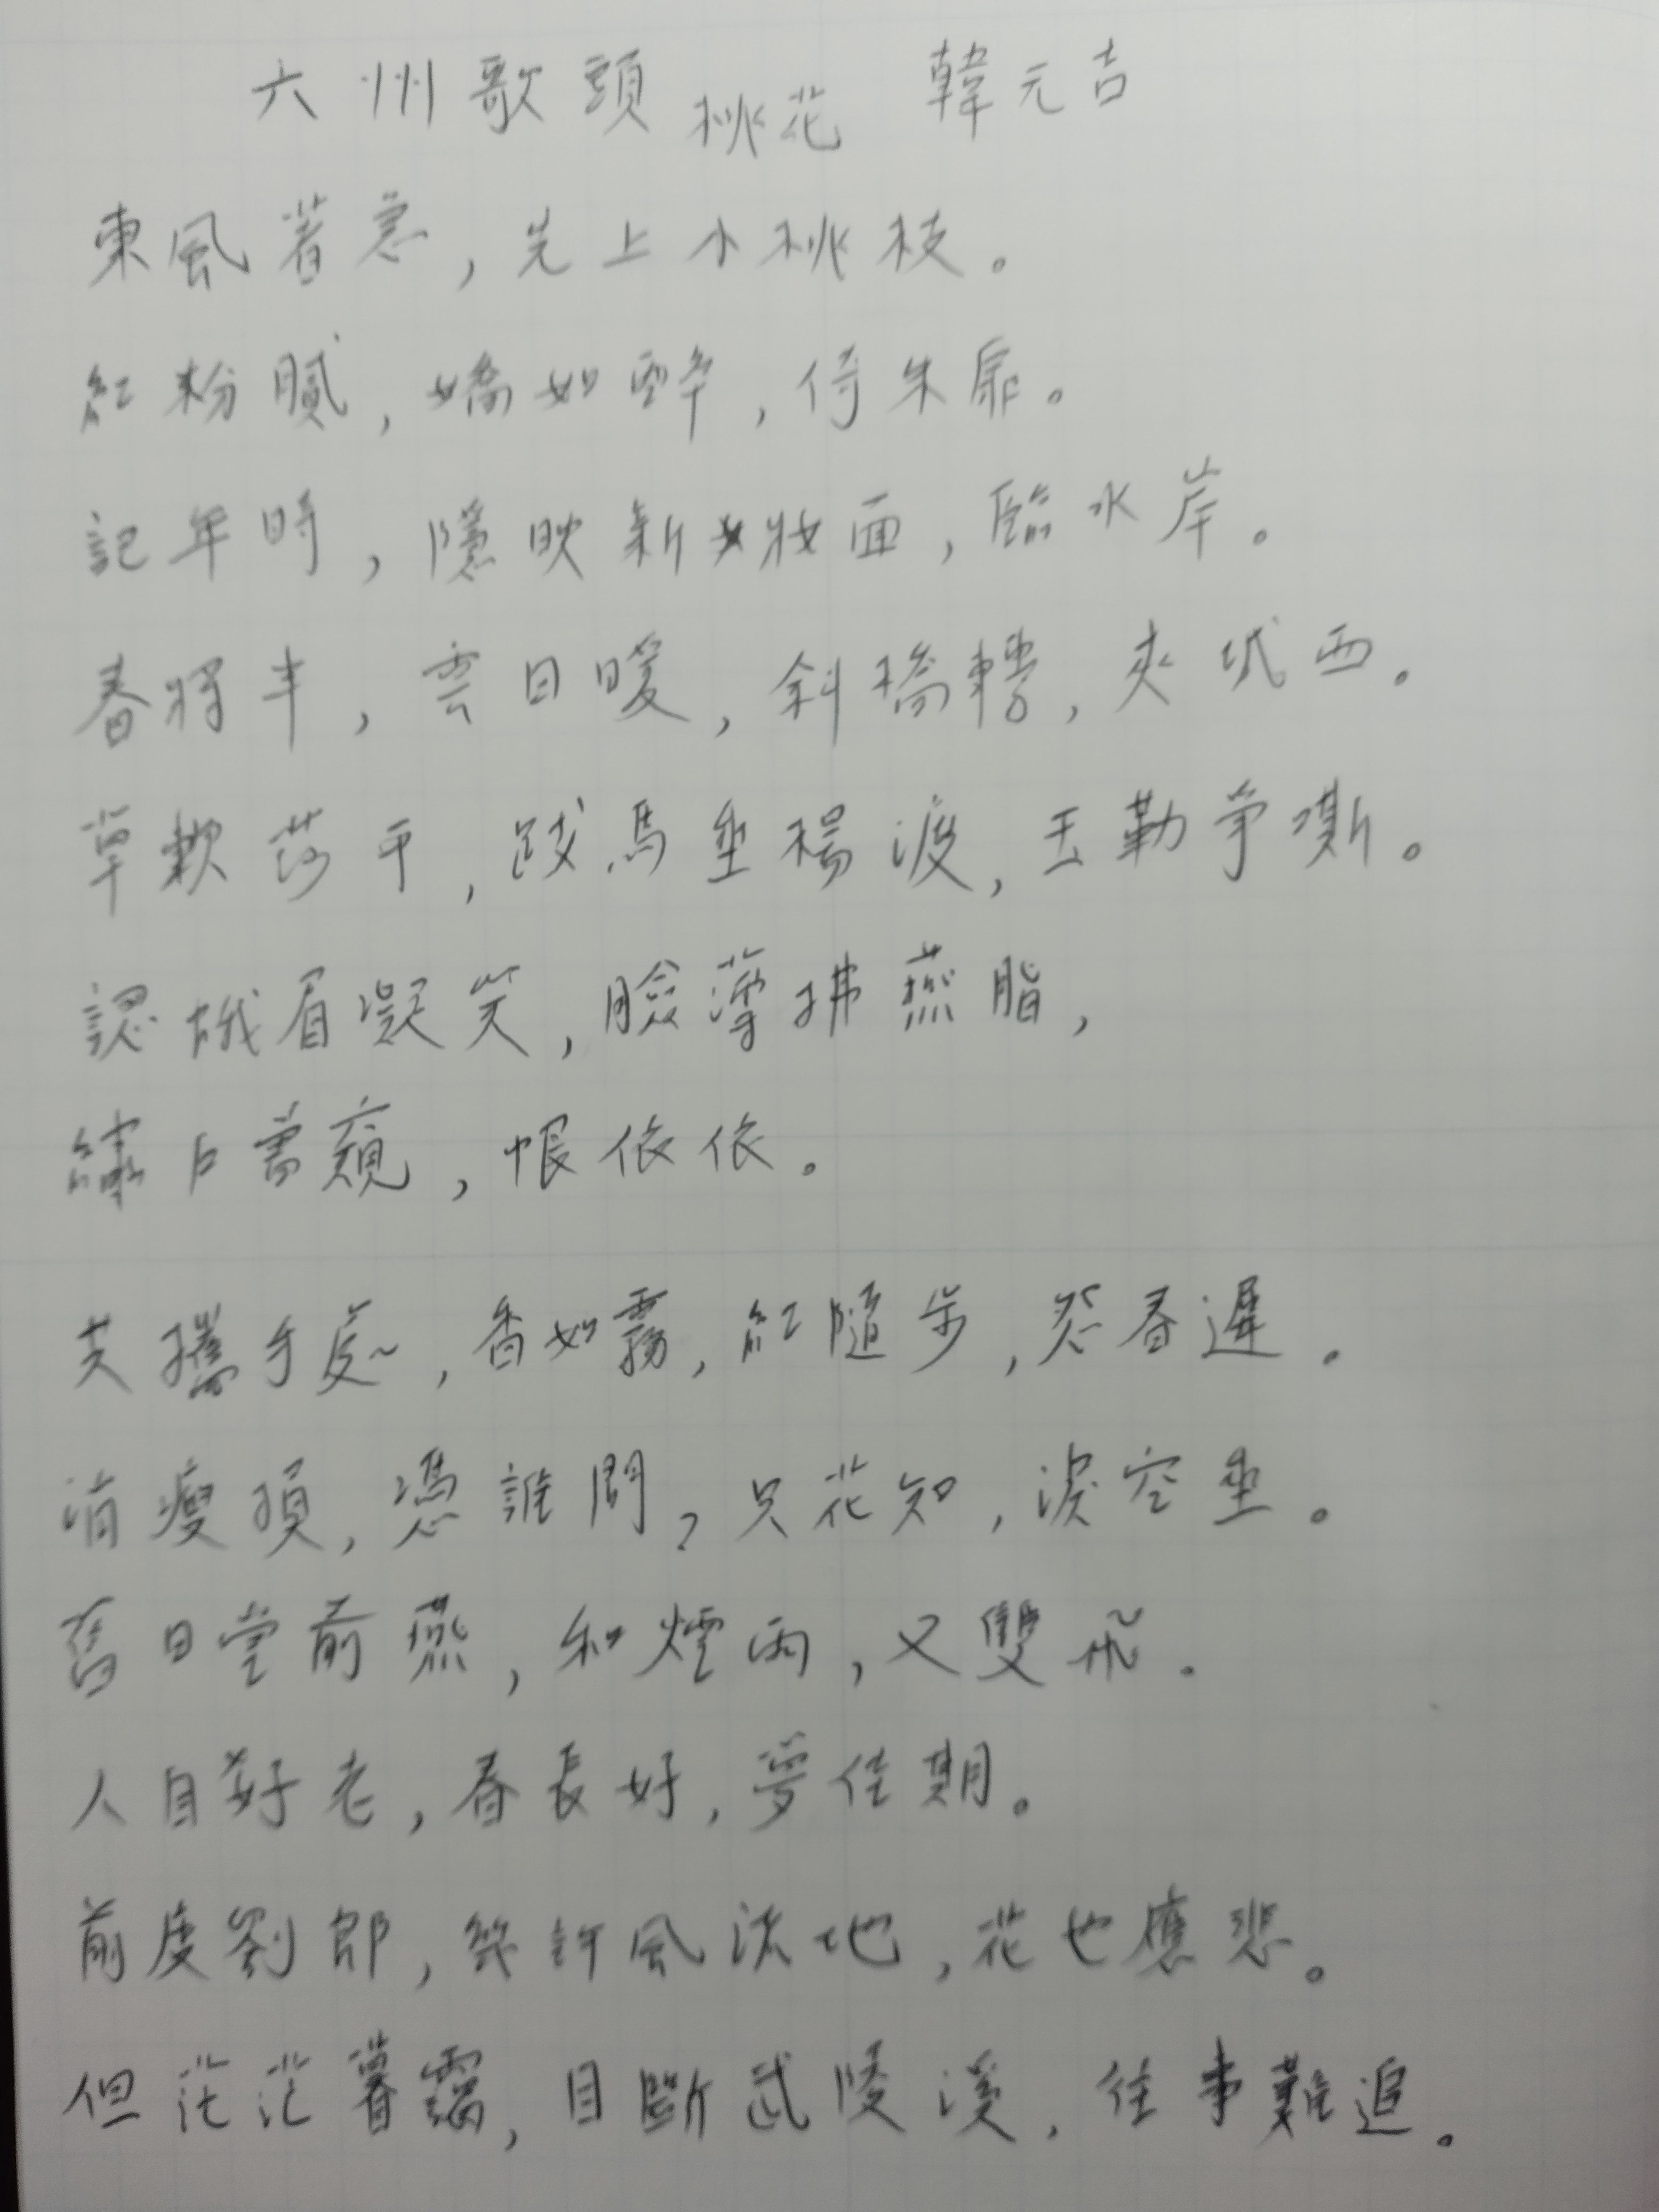 六州歌頭 桃花 韓元吉
東風著急，先上小桃枝。
紅粉膩，嬌如醉，倚朱扉。
記年時，隱映新妝面，臨水岸。
春將半，雲日暖，斜橋轉，夾城西。
草軟莎平，跋馬垂楊渡，玉勒爭嘶。
認蛾眉凝笑，臉薄拂燕脂，
繡戶曾窺，恨依依。
共攜手處，香如霧，紅隨步，怨春遲。
消瘦損，憑誰問？只花知，淚空垂。
舊日堂前燕，和煙雨，又雙飛。
人自老，春長好，夢佳期。
前度劉郎，幾許風流地，花也應悲。
但茫茫暮靄，目斷武陵溪，往事難追。